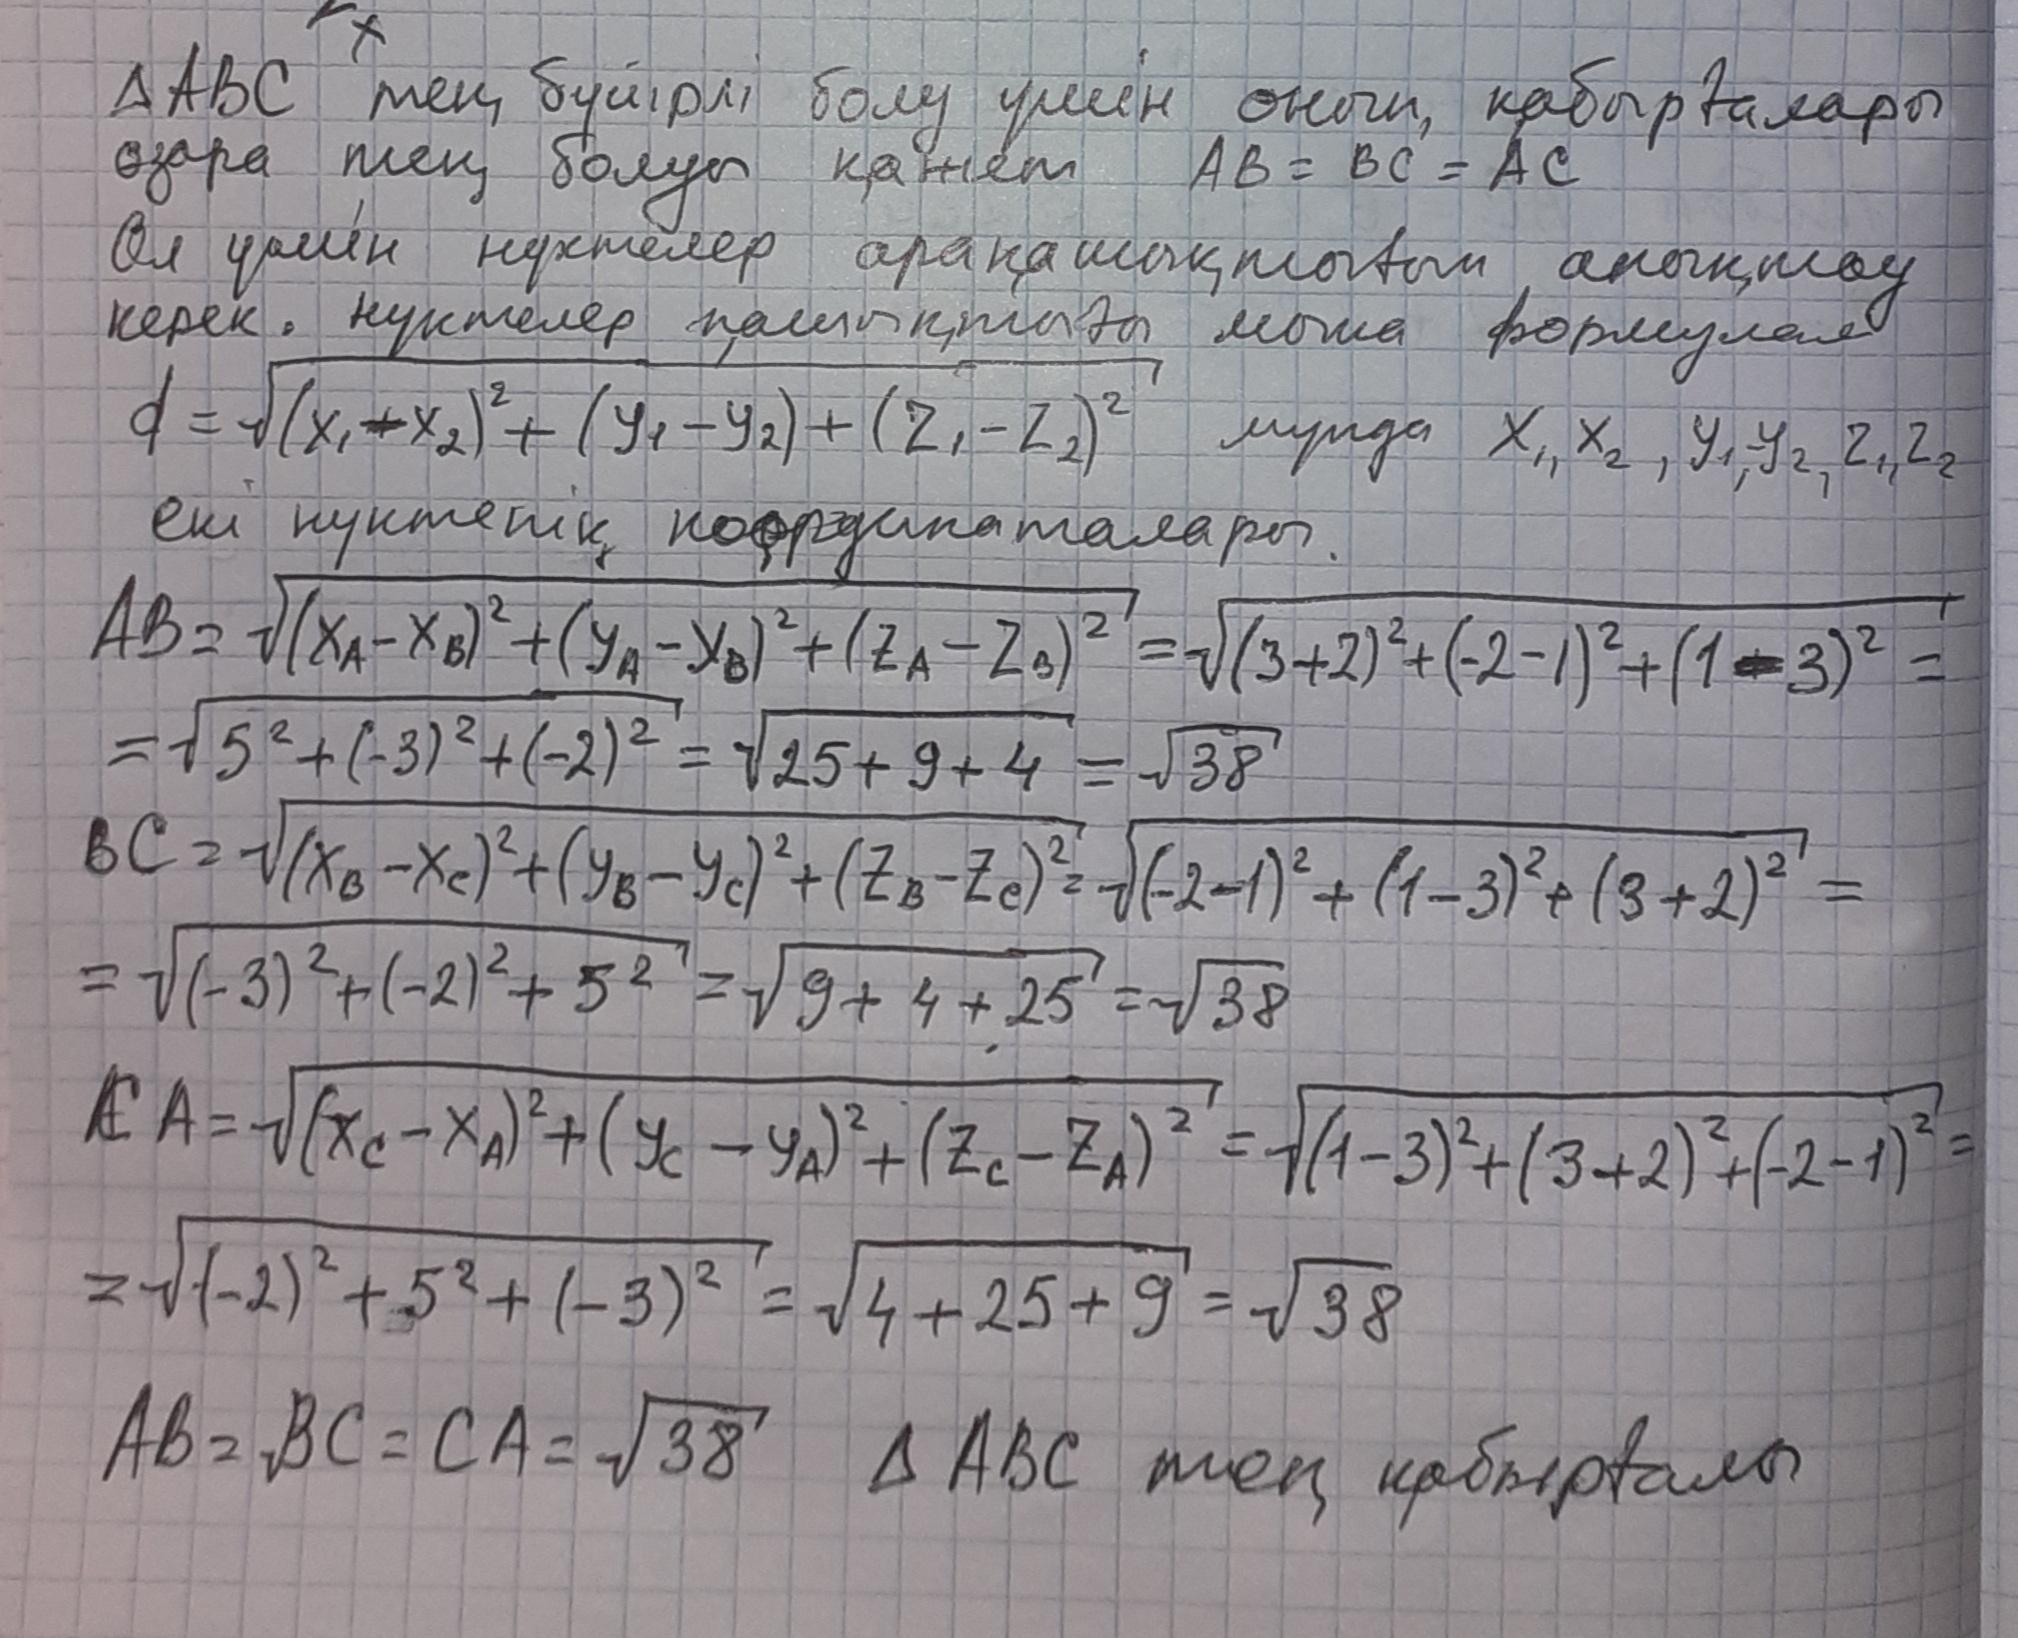 x
ΔABC тең бүйірлі болу үшін оның қабырғалары
өзара тең болуы қажет AB = BC = AC
Ол үшін нүктелер арақашықтығын анықтау
керек. нүктелер қашықтығы мына формулам
d = √((x₁ - x₂)² + (y₁ - y₂) + (z₁ - z₂)²) мұнда x₁, x₂, y₁, y₂, z₁, z₂
екі нүктенің координаталары.
AB = √((x_A - x_B)² + (y_A - y_B)² + (z_A - z_B)²) = √((3+2)² + (-2-1)² + (1-3)²) =
= √(5² + (-3)² + (-2)²) = √(25 + 9 + 4) = √38
BC = √((x_B - x_C)² + (y_B - y_C)² + (z_B - z_C)²) = √((-2-1)² + (1-3)² + (3+2)²) =
= √((-3)² + (-2)² + 5²) = √(9 + 4 + 25) = √38
CA = √((x_C - x_A)² + (y_C - y_A)² + (z_C - z_A)²) = √((1-3)² + (3+2)² + (-2-1)²) =
= √((-2)² + 5² + (-3)²) = √(4 + 25 + 9) = √38
AB = BC = CA = √38 Δ ABC тең қабырғалы